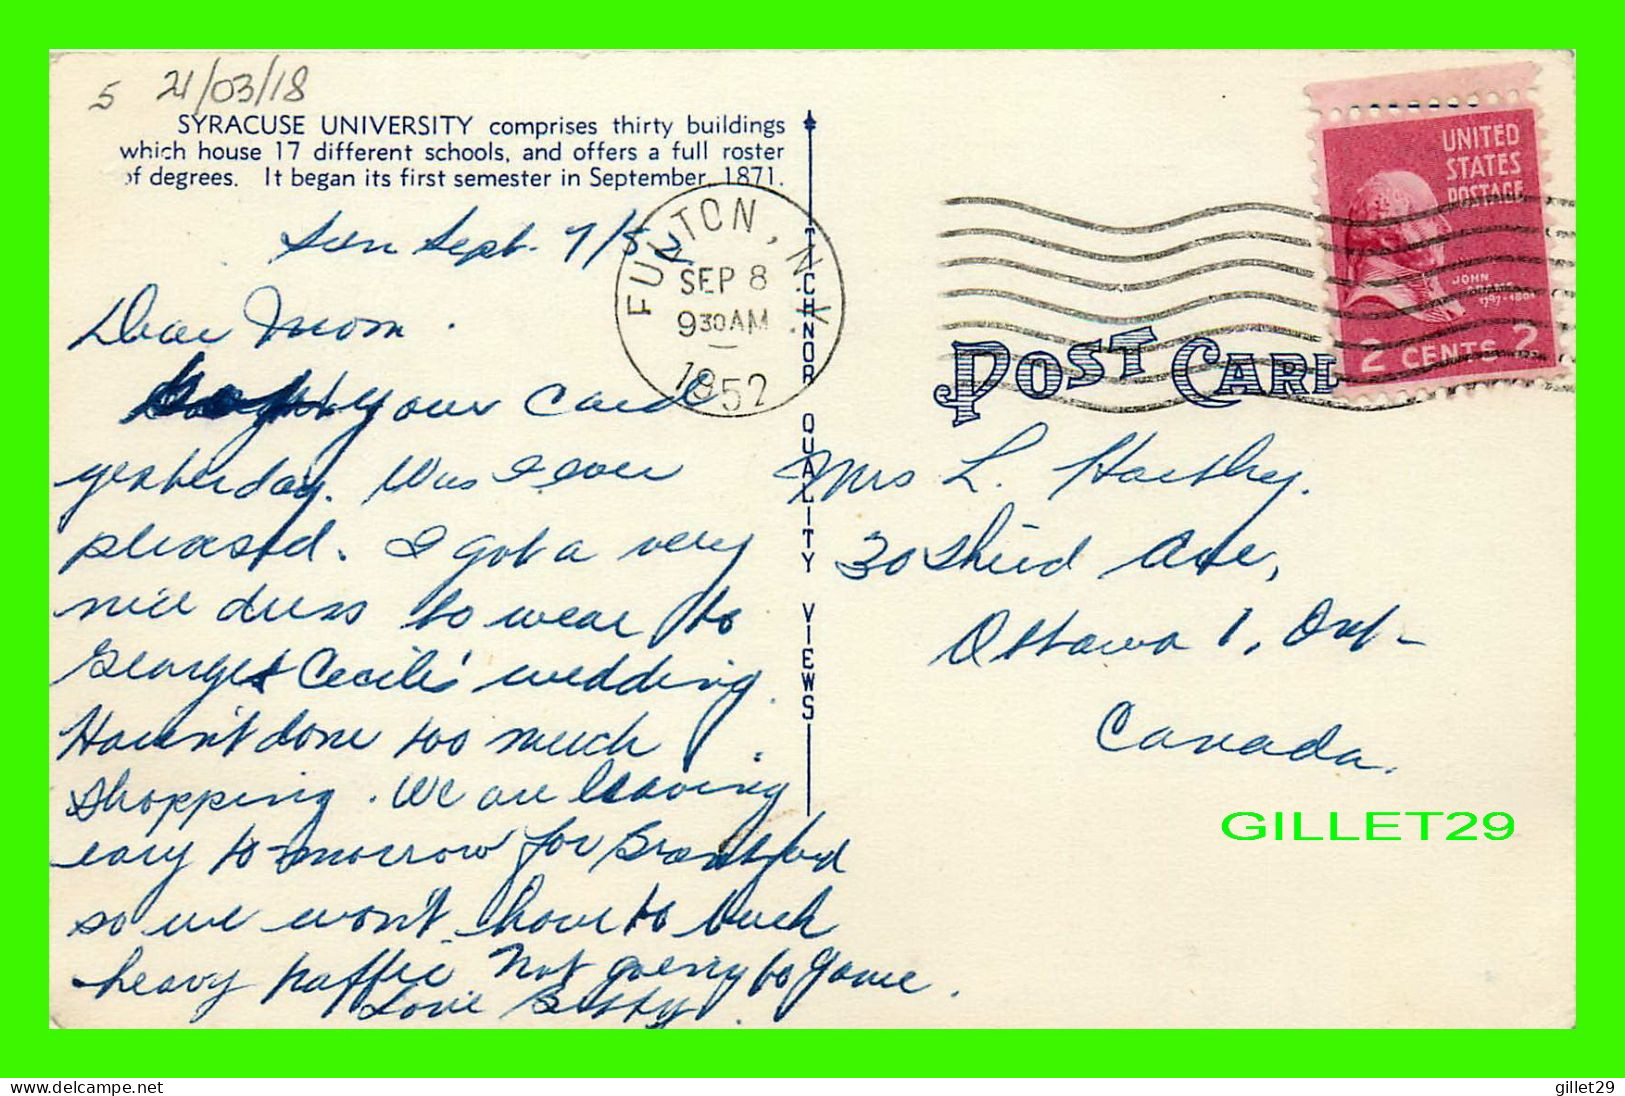 5 21/03/18
SYRACUSE UNIVERSITY comprises thirty buildings
which house 17 different schools, and offers a full roster
of degrees. It began its first semester in September, 1871.
Sun Sept. 7/52
Dear Mom.
your card
yesterday. Was I ever
pleased. I got a very
nice dress to wear to
George & Cecile's wedding.
Haven't done too much
shopping. We are leaving
early to-morrow for Brantford
so we won't have to buck
heavy traffic. Not going to game.
Love Betty.
FULTON, N.Y.
SEP 8
930AM
1952
TICHNOR QUALITY VIEWS
UNITED
STATES
POSTAGE
JOHN
ADAMS
1797-1801
2 CENTS 2
POST CARD
Mrs L. Hartley.
30 Third Ave,
Ottawa 1, Ont-
Canada.
GILLET29
www.delcampe.net
gillet29